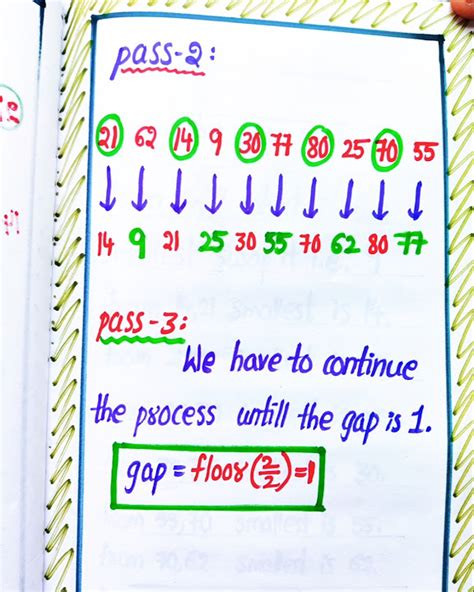 pass-2:
21 62 14 9 30 77 80 25 70 55
14 9 21 25 30 55 70 62 80 77
pass-3:
We have to continue
the process untill the gap is 1.
gap = floor(2/2)=1